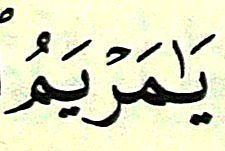 يَـٰمَرْيَمُ